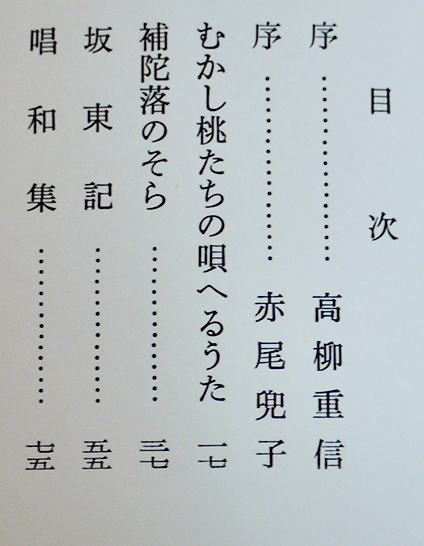 目次
序…………………高柳重信
序…………………赤尾兜子
むかし桃たちの唄へるうた 一七
補陀落のそら……………三七
坂東記……………五五
唱和集……………七五